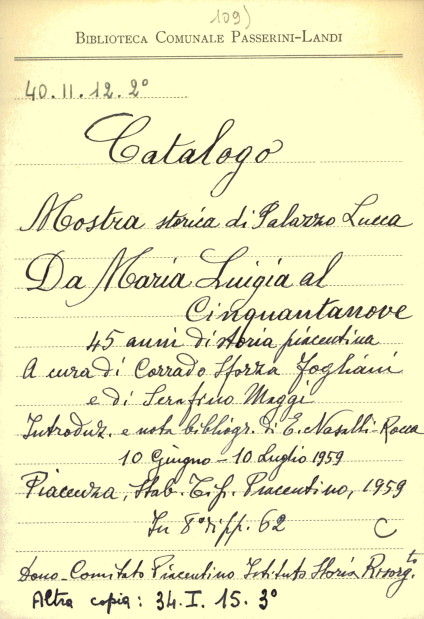 109)
BIBLIOTECA COMUNALE PASSERINI-LANDI
40.II.12.2°
Catalogo
Mostra storica di Palazzo Lucca
Da Maria Luigia al
Cinquantanove
45 anni di storia piacentina
A cura di Corrado Sforza Fogliani
e di Serafino Maggi
Introduz. e nota bibliogr. di E. Nasalli-Rocca
10 Giugno - 10 Luglio 1959
Piacenza, Stab. Tip. Piacentino, 1959
In 8° di pp. 62 C
Dono-Comitato Piacentino Istituto Storia Risorg.to
Altra copia: 34.I.15.3°